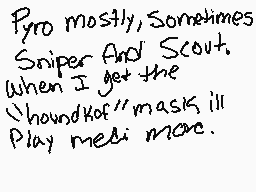 Pyro mostly, Sometimes
Sniper And Scout.
When I get the
"houndkof" mask ill
Play medi more.